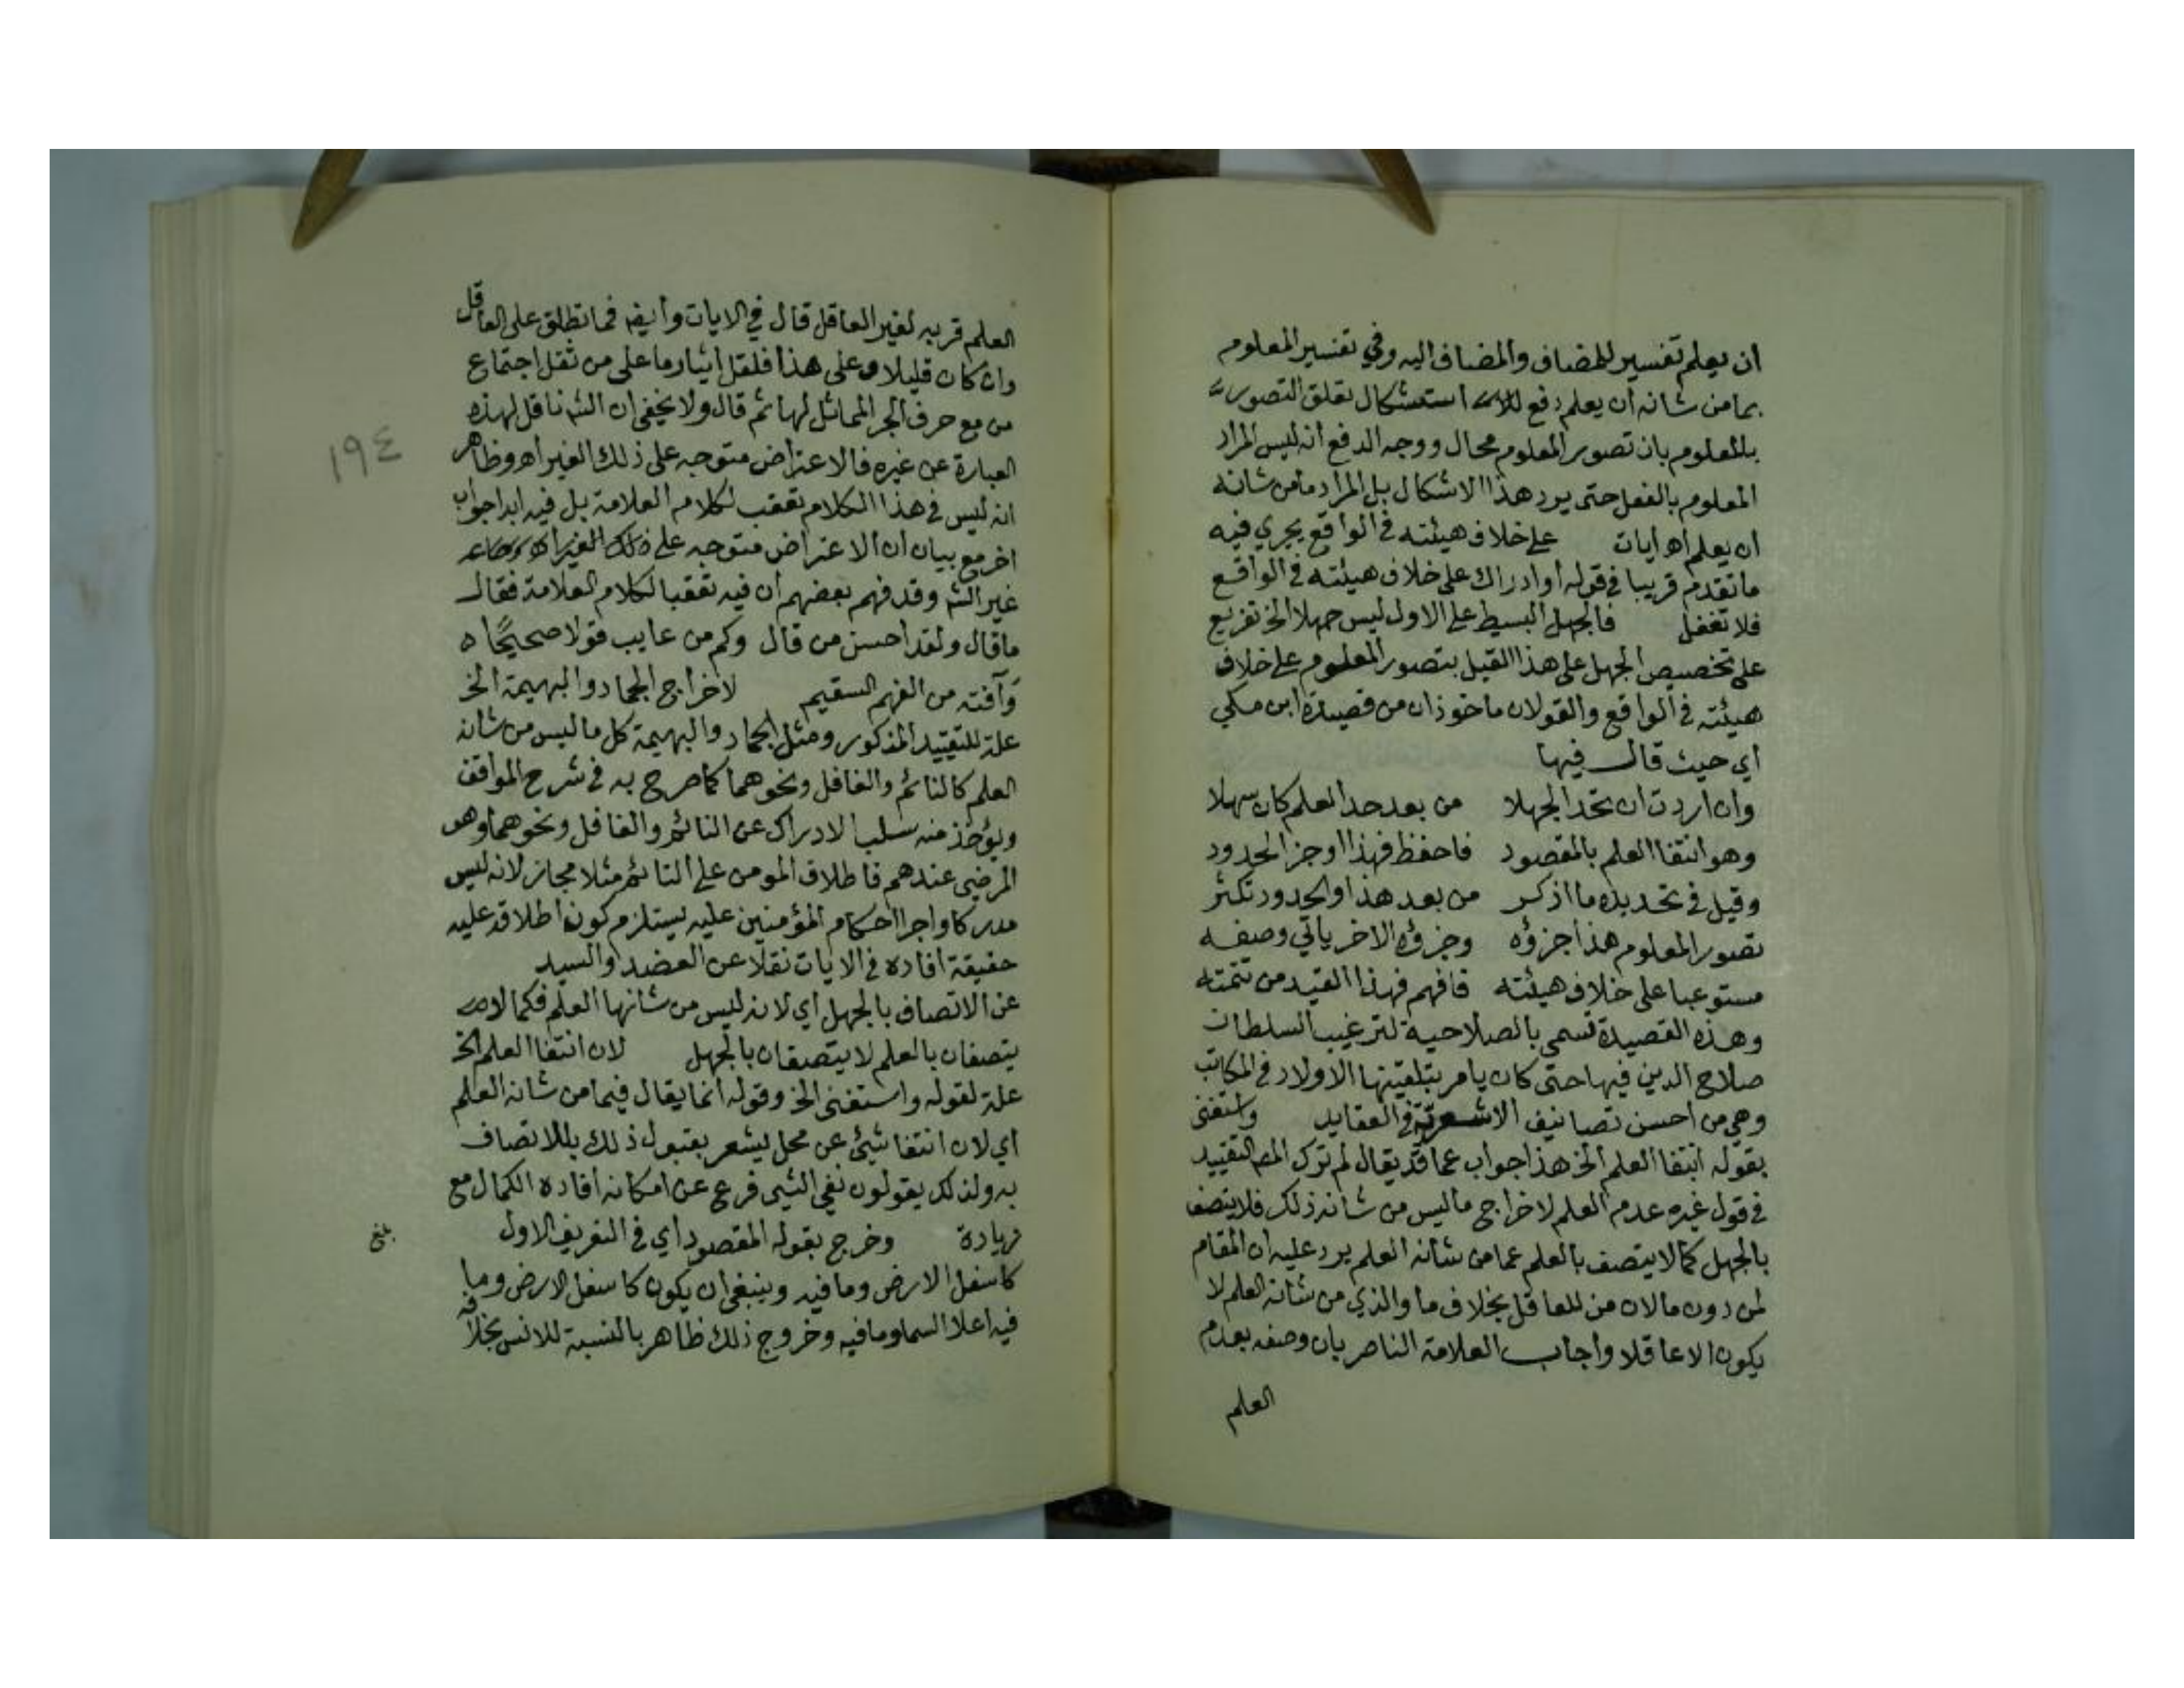 ان يعلم تفسير للمضاف والمضاف اليه وفي تفسير المعلوم
بما من شانه ان يعلم دفع استشكال تعلق التصور
بالمعلوم بان تصور المعلوم محال ووجه الدفع انه ليس المراد
المعلوم بالفعل حتى يرد هذا الاشكال بل المراد ما من شانه
ان يعلم اهـ ايات على خلاف هيئته في الواقع يجري فيه
ما تقدم قريبا في قوله او ادراك على خلاف هيئته في الواقع
فلا تغفل فالجهل البسيط على الاول ليس جهلا الخ تفريع
على تخصيص الجهل على هذا القيل بتصور المعلوم على خلاف
هيئته في الواقع والقولان ماخوذان من قصيدة ابن مكي
اي حيث قال فيها
وان اردت ان تحد الجهلا من بعد حد العلم كان سهلا
وهو انتفا العلم بالمقصود فاحفظ فهذا اوجز الحدود
وقيل في تحديده ما اذكر من بعد هذا والحدود تكثر
تصور المعلوم هذا جزؤه وجزؤه الاخر ياتي وصفه
مستوعبا على خلاف هيئته فافهم فهذا القيد من تتمته
وهذه القصيدة تسمى بالصلاحية لترغيب السلطان
صلاح الدين فيها حتى كان يامر بتلقينها الاولاد في المكاتب
وهي من احسن تصانيف الاشعرية في العقايد واستغنى
بقوله انتفا العلم الخ هذا جواب عما قد يقال لم ترك المص التقييد
في قول غيره عدم العلم لاخراج ما ليس من شانه ذلك فلا يتصف
بالجهل كما لا يتصف بالعلم عما من شانه العلم يرد عليه ان المقام
لمن دون ما لان من للعاقل بخلاف ما والذي من شانه العلم لا
يكون الا عاقلا واجاب العلامة الناصر بان وصفه بعدم
العلم
العلم قرينه لغير العاقل قال في الايات وايضا فما تطلق على العاقل
وان كان قليلا وعلى هذا فلقل ايثار ما على من ثقل اجتماع
من مع حرف الجر المماثل لها ثم قال ولا يخفى ان الش ناقل لهذه
العبارة عن غيره فالاعتراض متوجه على ذلك الغير اهـ وظاهر
انه ليس في هذا الكلام تعقب لكلام العلامة بل فيه ابدا جواب
اخر مع بيان ان الاعتراض متوجه على ذلك الغير
غير الش وقد فهم بعضهم ان فيه تعقبا لكلام العلامة فقال
ما قال ولقد احسن من قال وكم من عايب قولا صحيحًا ه
وَآفته من الفهم السقيم لاخراج الجماد والبهيمة الخ
علة للتقييد المذكور ومثل الجماد والبهيمة كل ما ليس من شانه
العلم كالنائم والغافل ونحوهما كما صرح به في شرح المواقف
ويؤخذ منه سلب الادراك عن النائم والغافل ونحوهما وهو
المرضي عندهم فاطلاق المومن على النائم مثلا مجاز لانه ليس
مدركا واجرا احكام المؤمنين عليه يستلزم كون اطلاقه عليه
حقيقة افاده في الايات نقلا عن العضد والسيد
عن الاتصاف بالجهل اي لانه ليس من شانها العلم فكما لا
يتصفان بالعلم لا يتصفان بالجهل لان انتفا العلم الخ
علة لقوله واستغنى الخ وقوله انما يقال فيما من شانه العلم
اي لان انتفا شيئ عن محل يشعر بقبول ذلك بالاتصاف
به ولذلك يقولون نفي الشي فرع عن امكانه افاده الكمال مع
زيادة وخرج بقوله المقصود اي في التعريف الاول
كاسفل الارض وما فيه وينبغي ان يكون كاسفل الارض وما
فيه اعلا السما وما فيه وخروج ذلك ظاهر بالنسبة للانس بخلافه
١٩٤